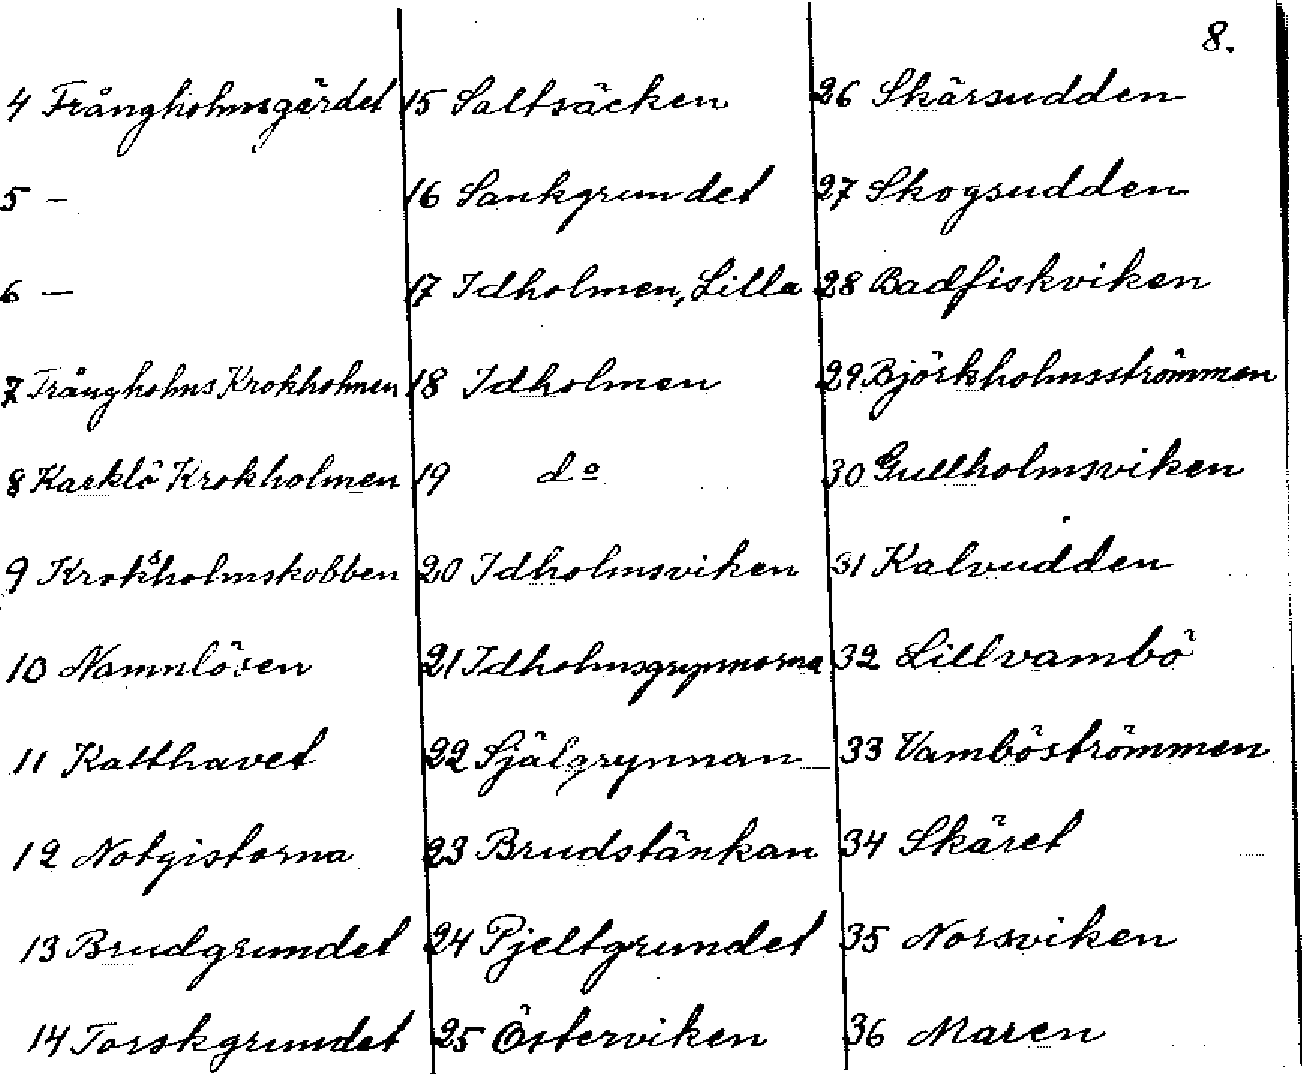 8.
4 Trångholmsgärdet
5 –
6 –
7 Trångholms Krokholmen
8 Karklö Krokholmen
9 Kroksholmskobben
10 Namnlösen
11 Katthavet
12 Notgistorna
13 Brudgrundet
14 Torskgrundet
15 Saltsäcken
16 Sankgrundet
17 Idholmen, Lilla
18 Idholmen
19 do
20 Idholmsviken
21 Idholmsgrynnorna
22 Själgrynnan
23 Brudstänkan
24 Pjeltgrundet
25 Österviken
26 Skärsudden
27 Skogsudden
28 Badfiskviken
29 Björkholmsströmmen
30 Gullholmsviken
31 Kalvudden
32 Lillvambö
33 Vamböströmmen
34 Skäret
35 Norsviken
36 Maren